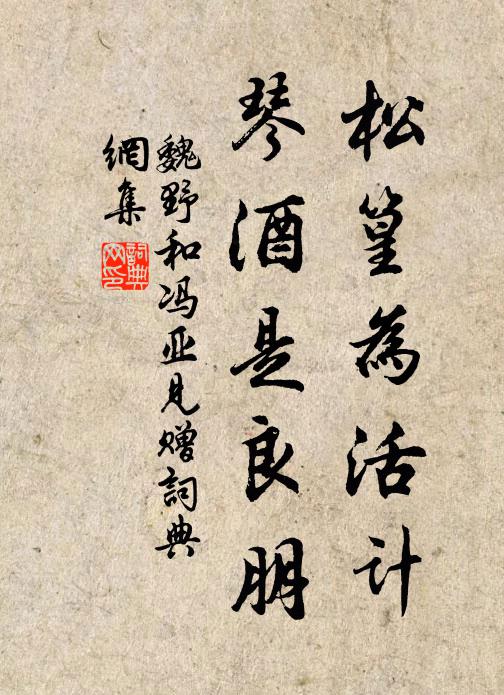 松篁為活计
琴酒是良朋
魏野和冯亚见赠詞典
網集
詞典
网印